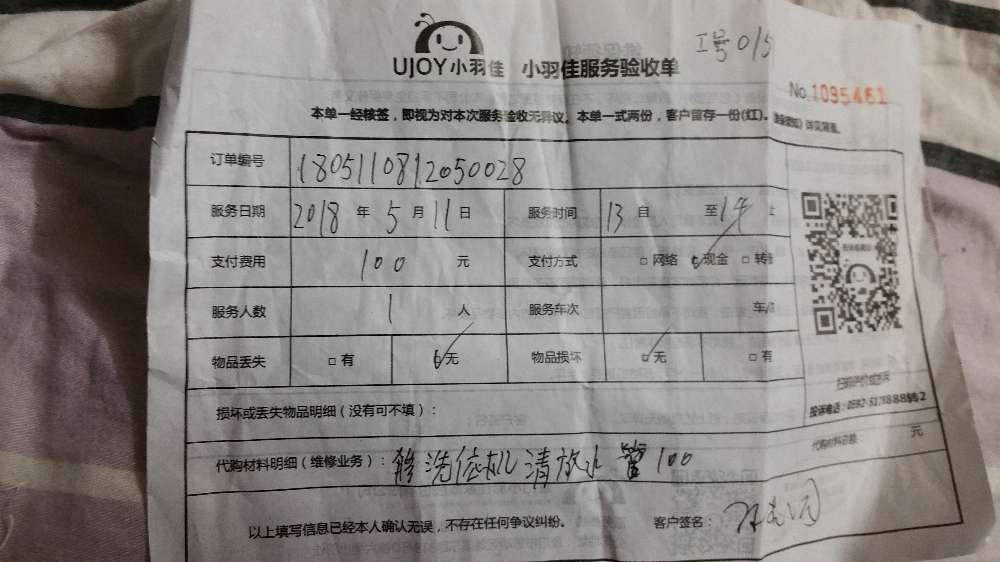 工号015
UJOY小羽佳 小羽佳服务验收单
No.1095461
本单一经核签，即视为对本次服务验收无异议。本单一式两份，客户留存一份(红)。
订单编号 1805110812050028
服务日期 2018 年 5 月 11 日 服务时间 13 自 至 14
支付费用 100 元 支付方式 □网络 ☑现金 □转
服务人数 1 人 服务车次 车/
物品丢失 □有 ☑无 物品损坏 ☑无 □有
损坏或丢失物品明细（没有可不填）：
代购材料明细（维修业务）：修洗依机清放水管100
代购材料总额： 元
以上填写信息已经本人确认无误，不存在任何争议纠纷。 客户签名：